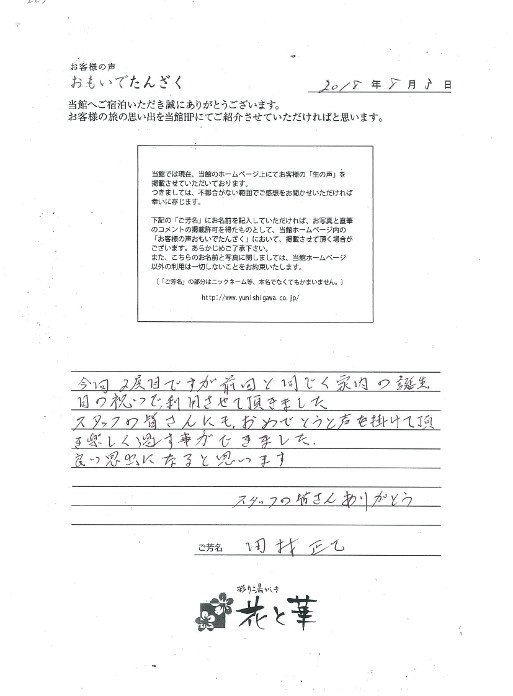 お客様の声
おもいでたんざく
2018年8月8日
当館へご宿泊いただき誠にありがとうございます。
お客様の旅の思い出を当館HPにてご紹介させていただければと思います。
当館では現在、当館のホームページ上にてお客様の「生の声」を
掲載させていただいております。
つきましては、不都合がない範囲でご感想をお聞かせいただければ
幸いに存じます。
下記の「ご芳名」にお名前を記入していただければ、お写真と直筆
のコメントの掲載許可を得たものとして、当館ホームページ内の
「お客様の声おもいでたんざく」において、掲載させて頂く場合が
ございます。あらかじめご了承下さい。
また、こちらのお名前と写真に関しましては、当館ホームページ
以外の利用は一切しないことをお約束いたします。
（「ご芳名」の部分はニックネーム等、本名でなくてもかまいません。）
http://www.yunishigawa.co.jp/
今回2度目ですが前回と同じく家内の誕生
日の祝いで、利用させて頂きました
スタッフの皆さんにも、おめでとうと声を掛けて頂
き楽しく過す事ができました。
良い思出になると思います
スタッフの皆さんありがとう
ご芳名 田村 正乙
彩り湯かしき
花と華